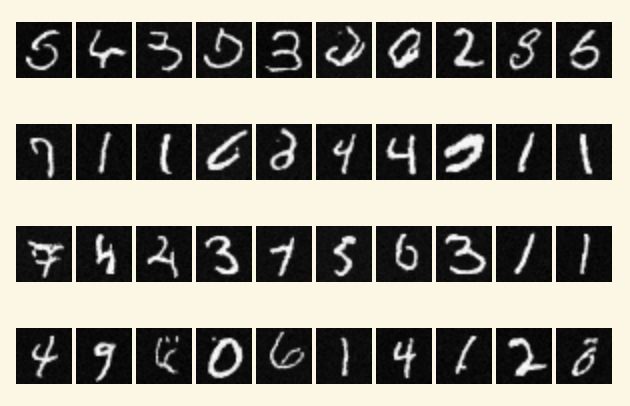 5 4 3 3 0 2 8 6
7 1 1 6 4 4 1 1
7 4 2 3 7 5 6 3 1 1
4 9 0 6 1 4 1 2 8